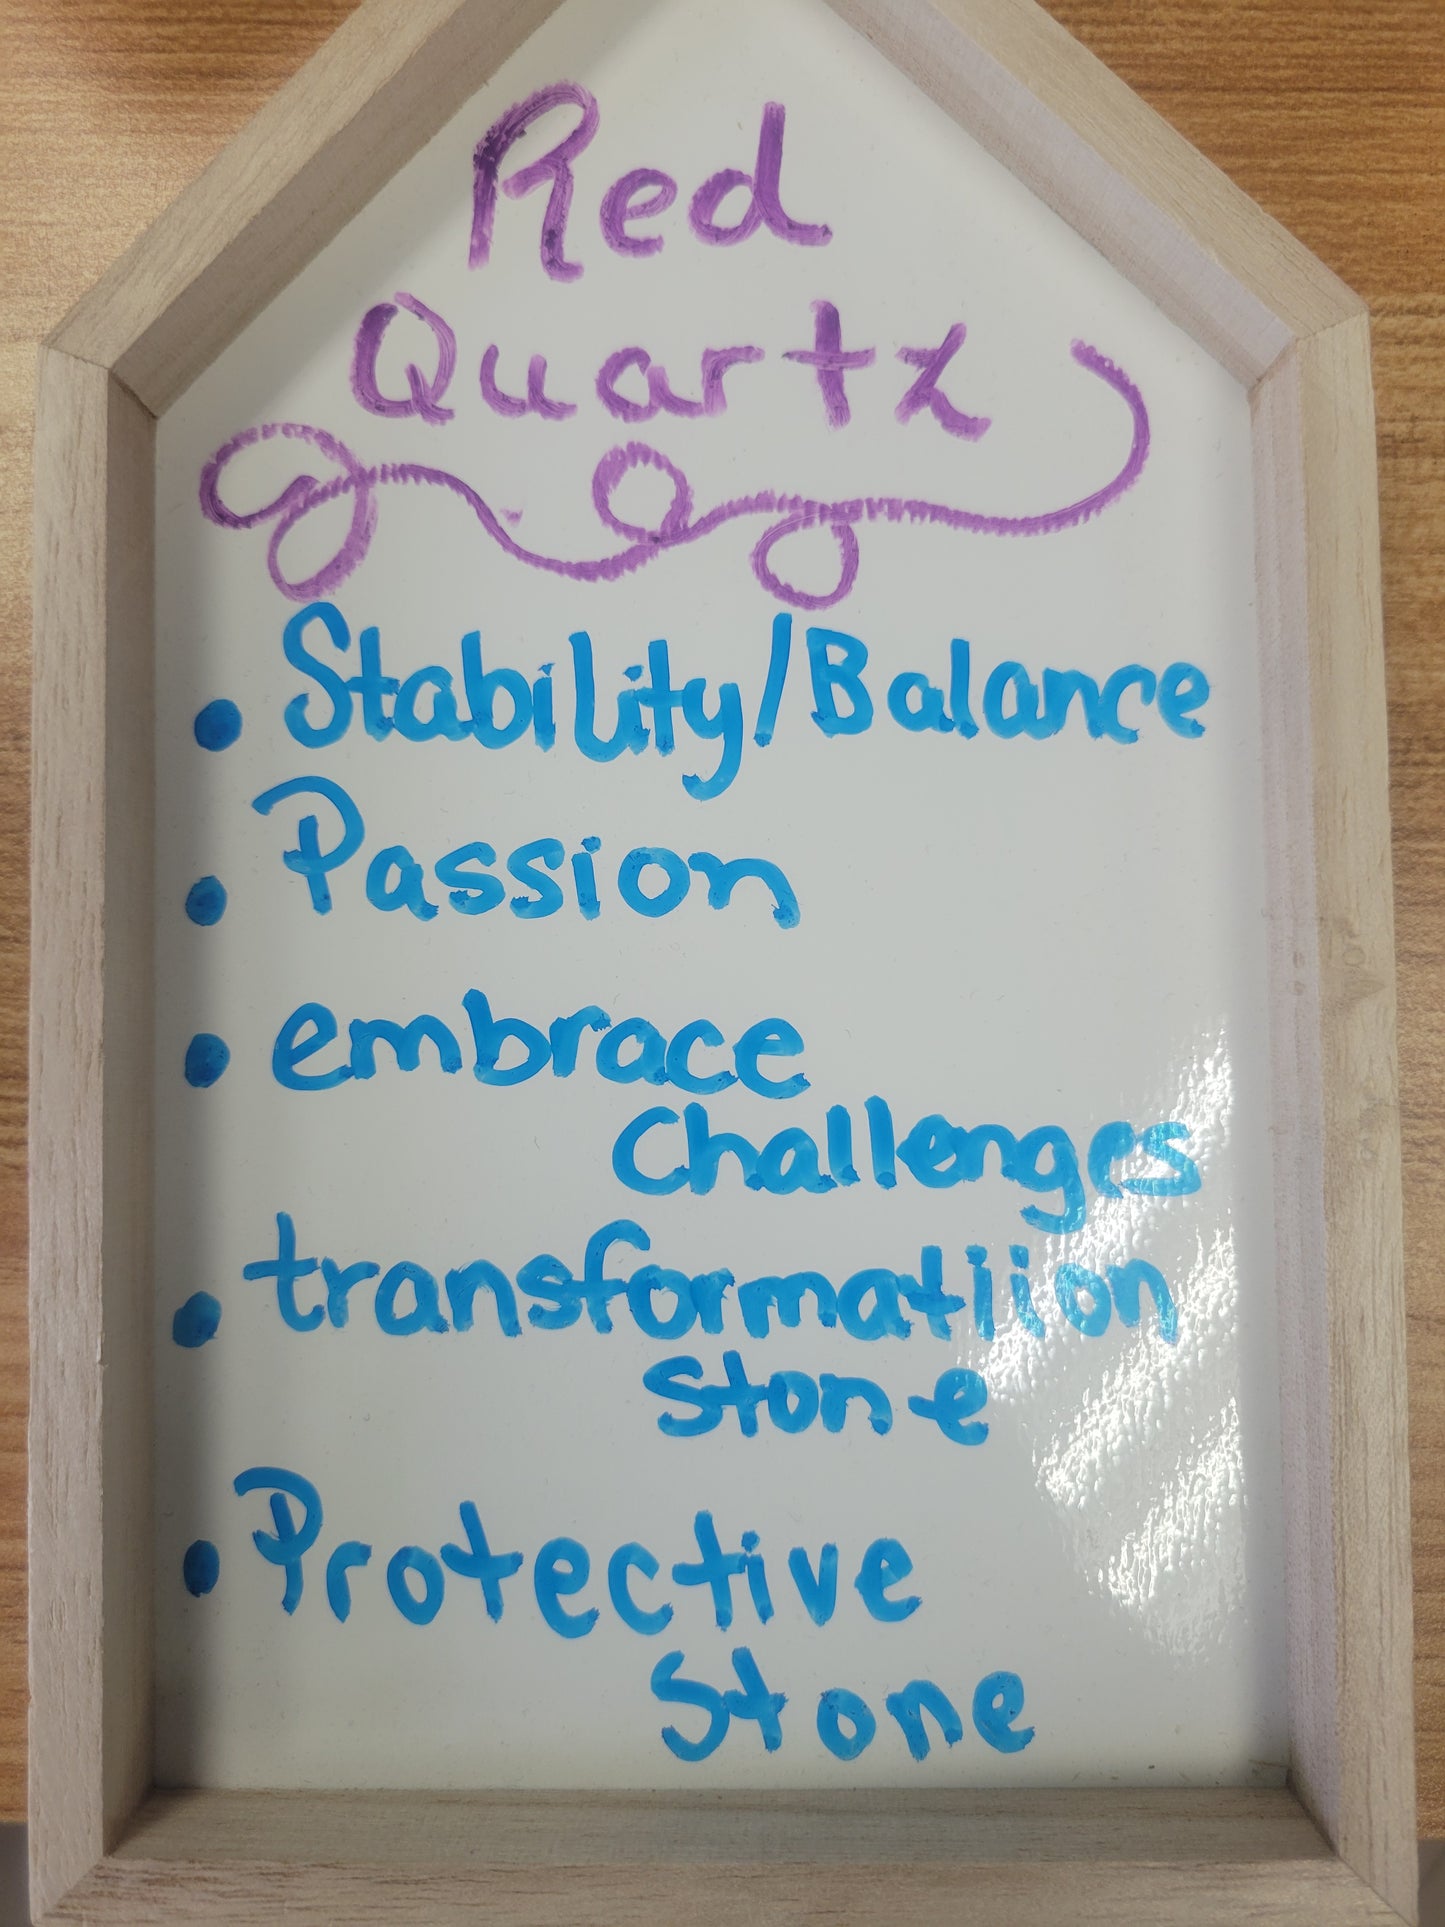 Red
Quartz
• Stability/Balance
• Passion
• embrace
Challenges
• transformatiion
stone
• Protective
Stone